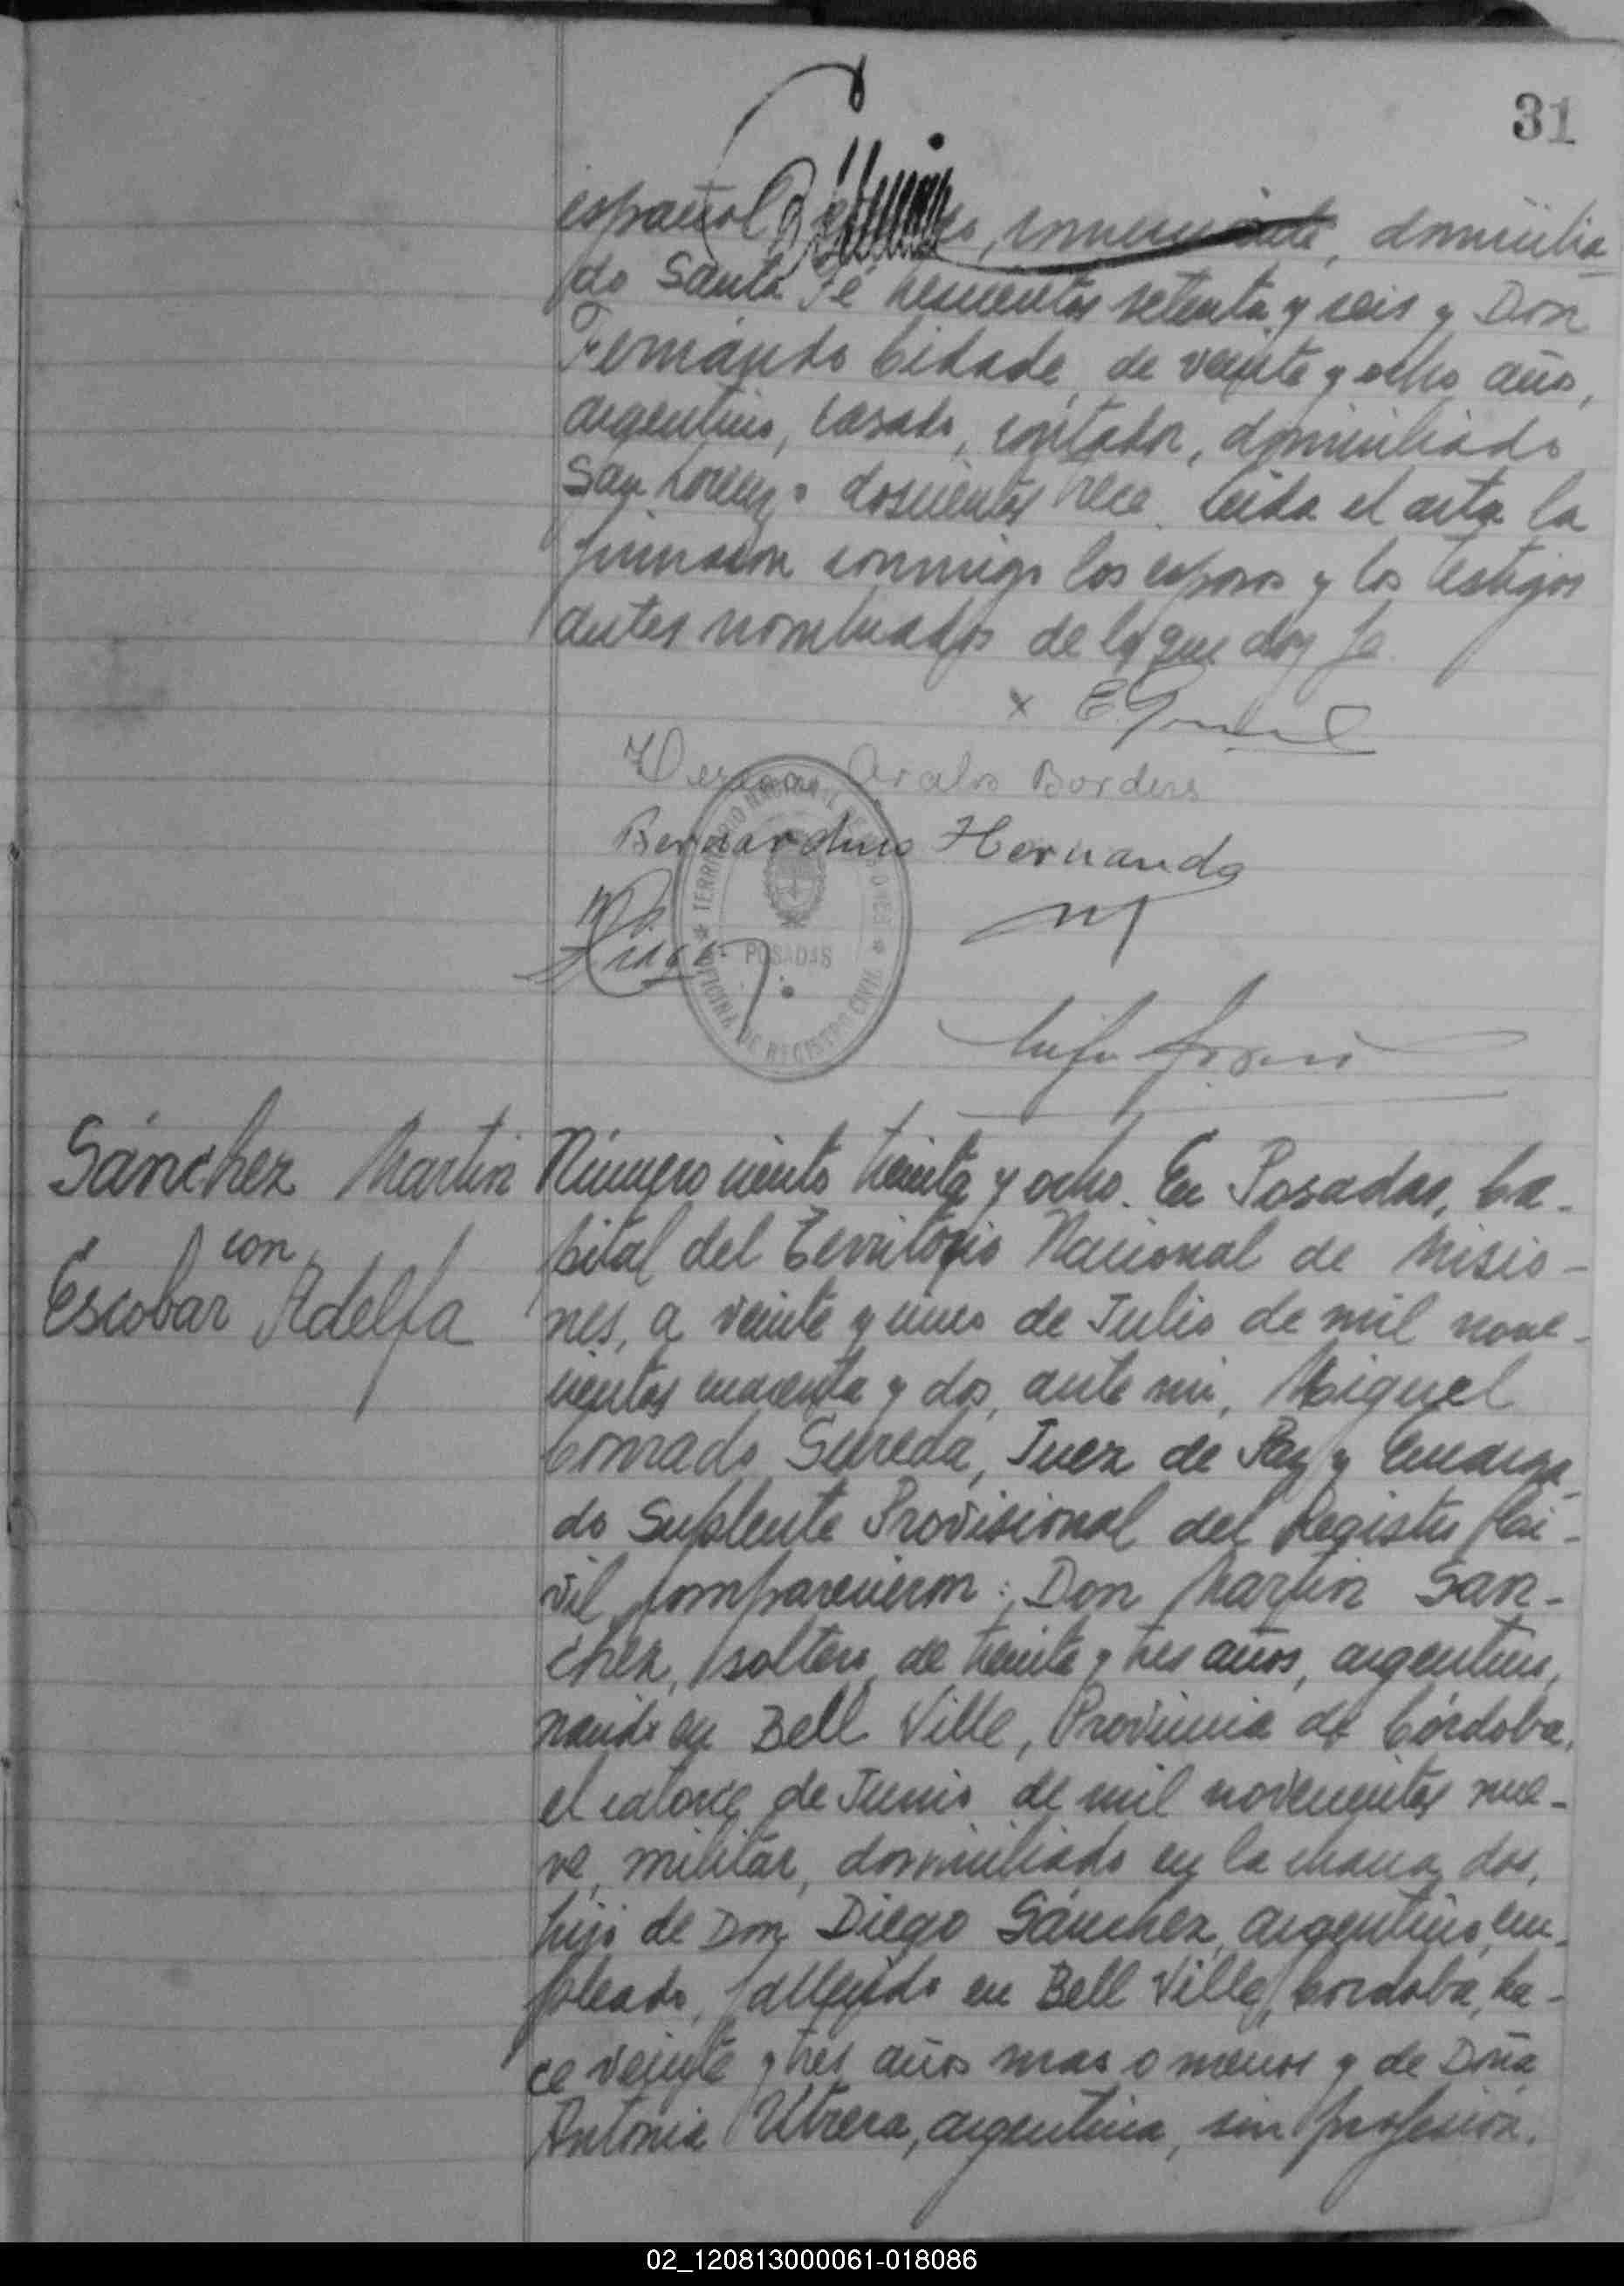 31
español, comerciante, domicilia-
do Santa Fé trescientos setenta y seis y Don
Fernando Cidade, de veinte y ocho años,
argentino, casado, contador, domiciliado
San Lorenzo doscientos trece. Leída el acta la
firmaron conmigo los esposos y los testigos
antes nombrados de lo que doy fe.
x E.
Aralos Borders
Bernardino Hernando
TERRITORIO NACIONAL DE MISIONES
POSADAS
OFICINA DE REGISTRO CIVIL
Sánchez Martin
con
Escobar Adelfa
Número ciento treinta y ocho. En Posadas, Ca-
pital del Territorio Nacional de Misio-
nes, a veinte y uno de Julio de mil nove-
cientos cuarenta y dos, ante mi, Miguel
Conrado Sureda, Juez de Paz y Encarga-
do Suplente Provisional del Registro Ci-
vil, comparecieron: Don Martin San-
chez, soltero, de treinta y tres años, argentino,
nacido en Bell Ville, Provincia de Córdoba,
el catorce de Junio de mil novecientos nue-
ve, militar, domiciliado en la chacra dos,
hijo de Don Diego Sánchez, argentino, em-
pleado, fallecido en Bell Ville, Cordoba, ha-
ce veinte y tres años mas o menos y de Doña
Antonia Utrera, argentina, sin profesión,
02_120813000061-018086